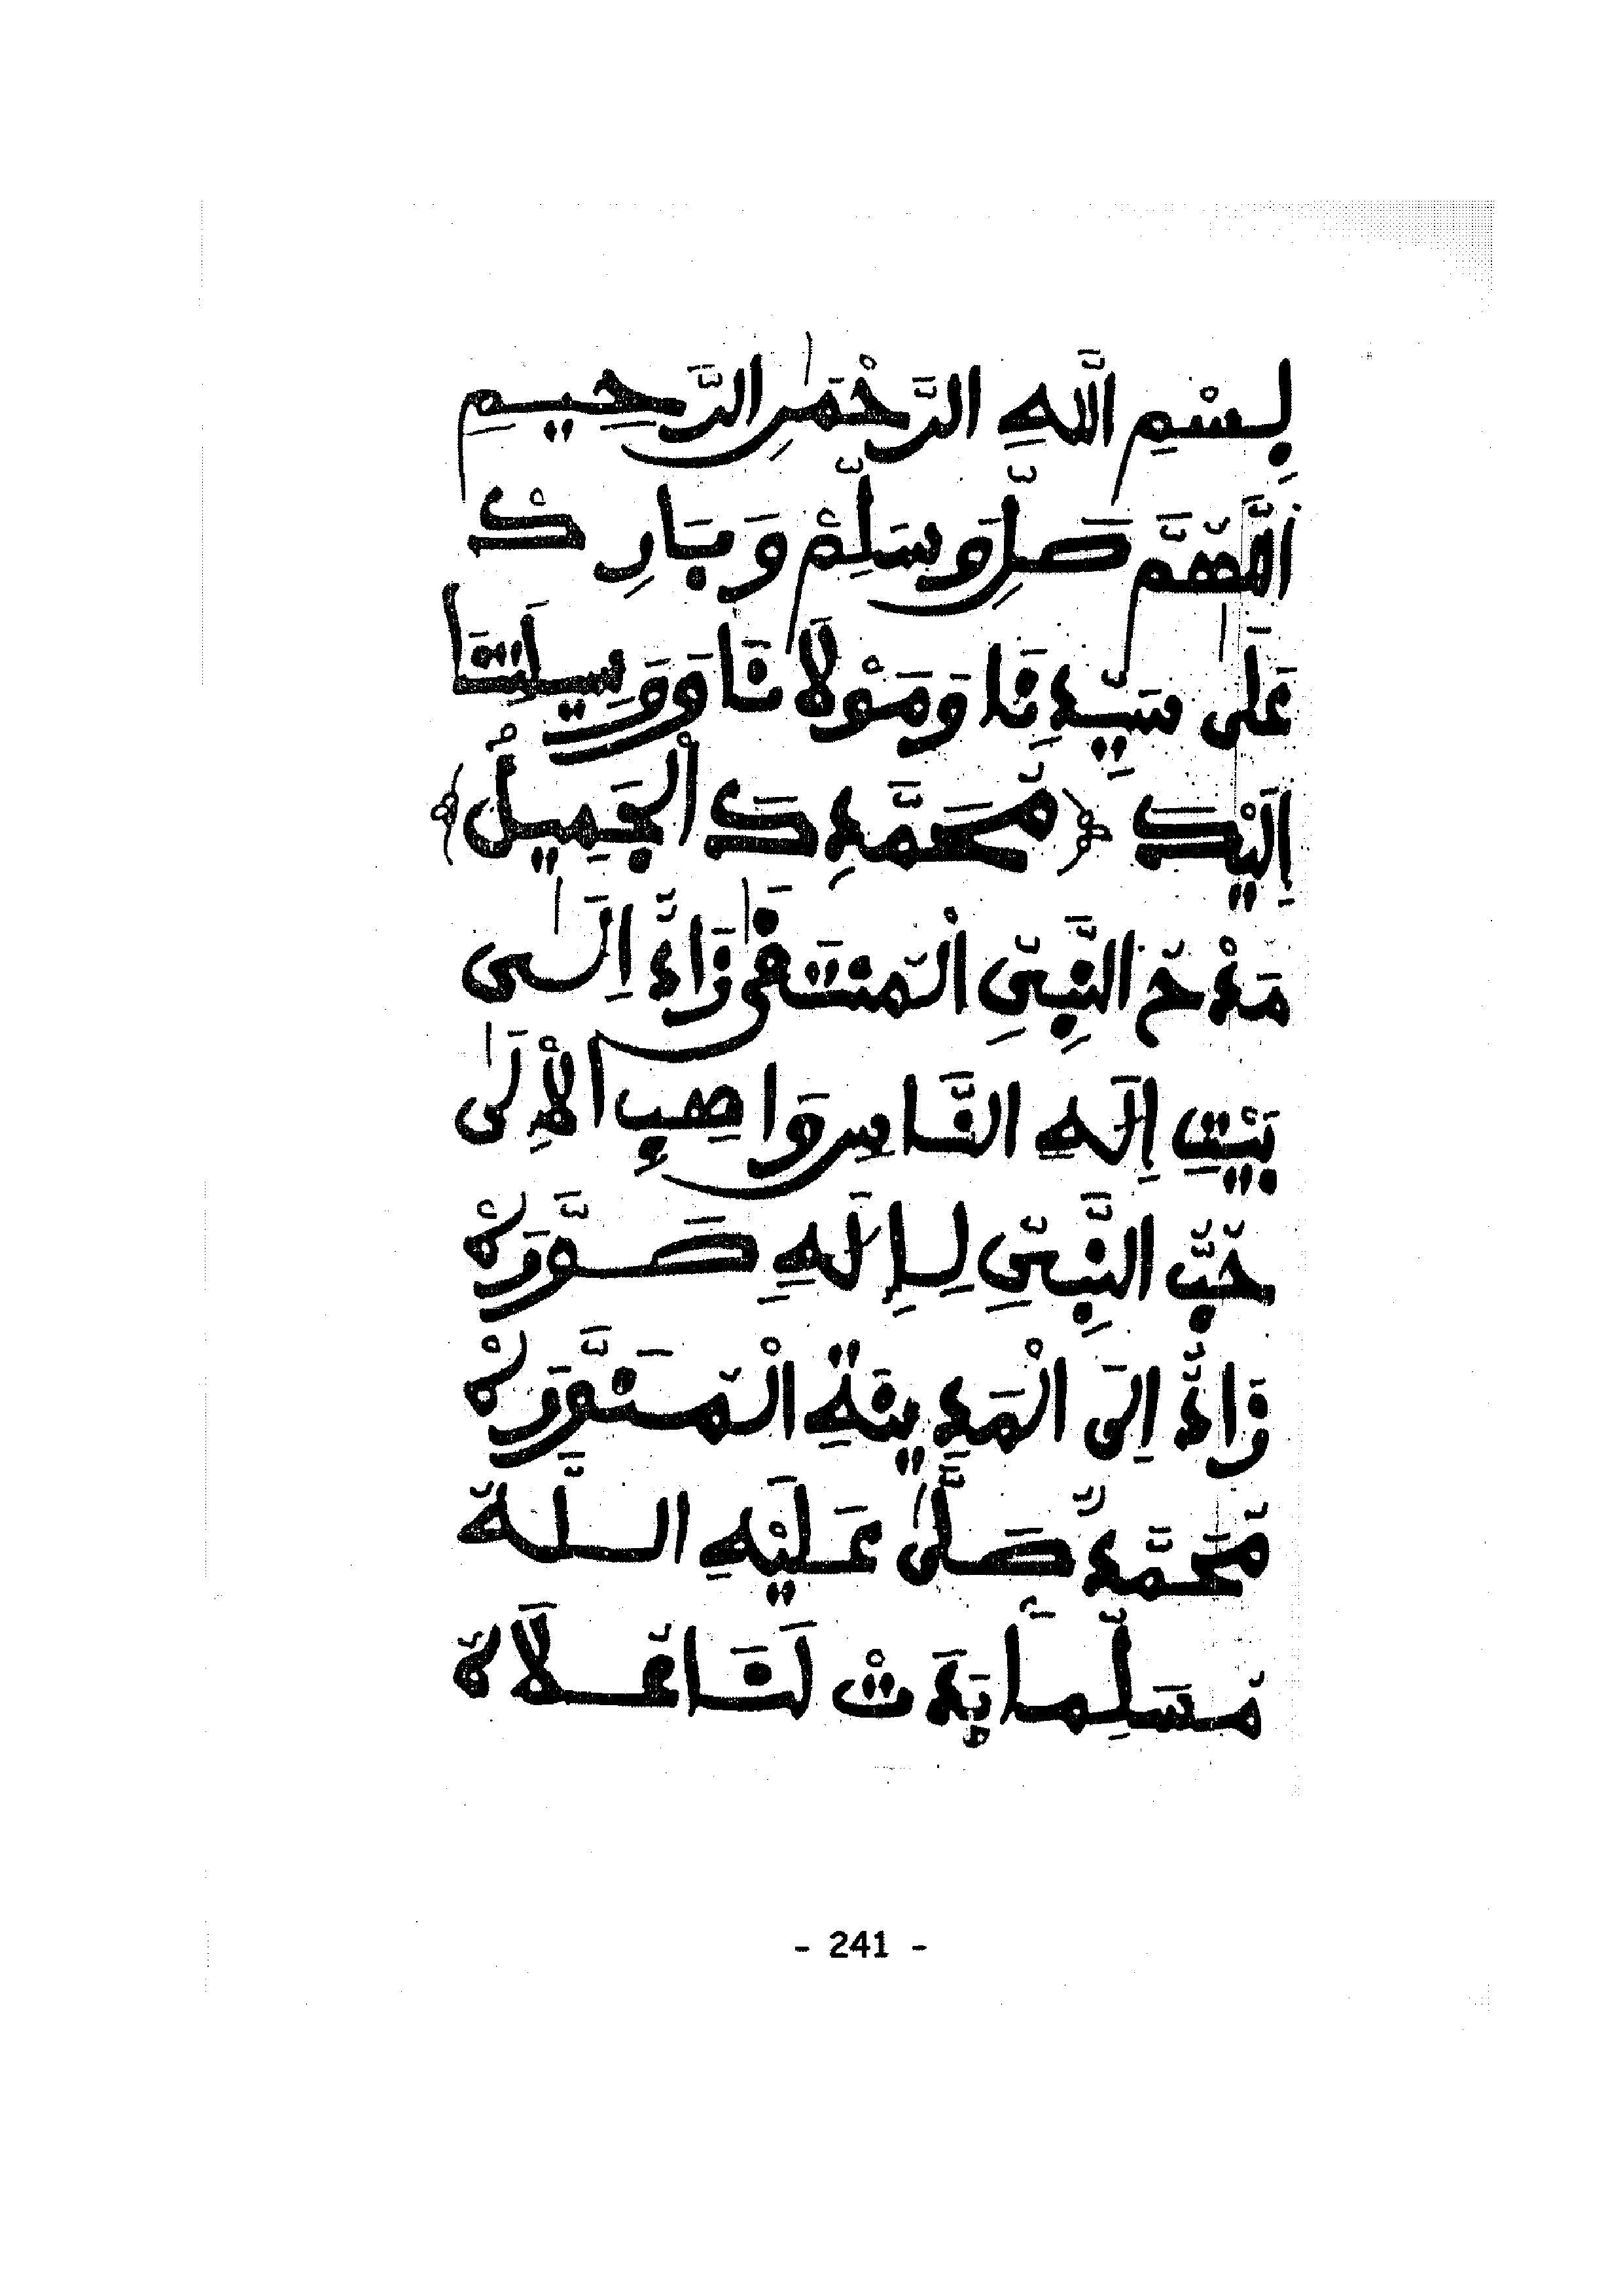 بِسْمِ اللَّهِ الرَّحْمَٰنِ الرَّحِيمِ
اَللَّهُمَّ صَلِّ وَسَلِّمْ وَبَارِكْ
عَلَى سَيِّدِنَا وَمَوْلَانَا وَوَسِيلَتِنَا
إِلَيْكَ ﴿ مُحَمَّدِكَ الْجَمِيلُ ﴾
مَدْحُ النَّبِيِّ الْمُنْتَقَى زَادٌ إِلَى
بَيْتِ إِلَهِ النَّاسِ وَاهِبِ الْإِلَى
حُبُّ النَّبِيِّ لِإِلَهِ صَوَّرَهْ
زَادٌ إِلَى الْمَدِينَةِ الْمُنَوَّرَهْ
مُحَمَّدٌ صَلَّى عَلَيْهِ اللَّهُ
مُسَلِّمًا بَدَتْ لَنَا عُلَاهُ
- 241 -